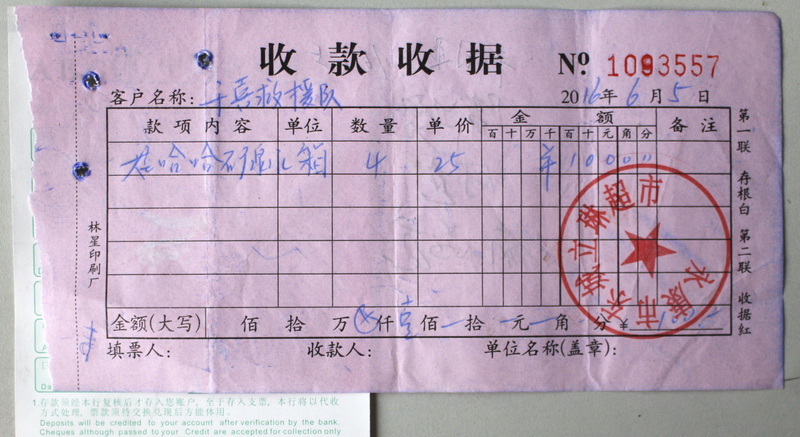 收款收据 № 1093557
客户名称: 救援队 2016年6月5日
款项内容 单位 数量 单价 金额 备注
百 十 万 千 百 十 元 角 分
娃哈哈 箱 4 25 ¥10000
金额(大写) 佰 拾 万 ⊗仟 壹佰 拾 元 角 分 ¥
填票人: 收款人: 单位名称(盖章):
第一联 存根白 第二联 收据红
林星印刷厂
永康市 立 超市
1.存款须经本行复核后才存入您账户,至于存入支票,本行将以代收
方式处理,票款须待交换兑现后方能体用。
Deposits will be credited to your account after verification by the bank.
Cheques although passed to your Credit are accepted for collection only